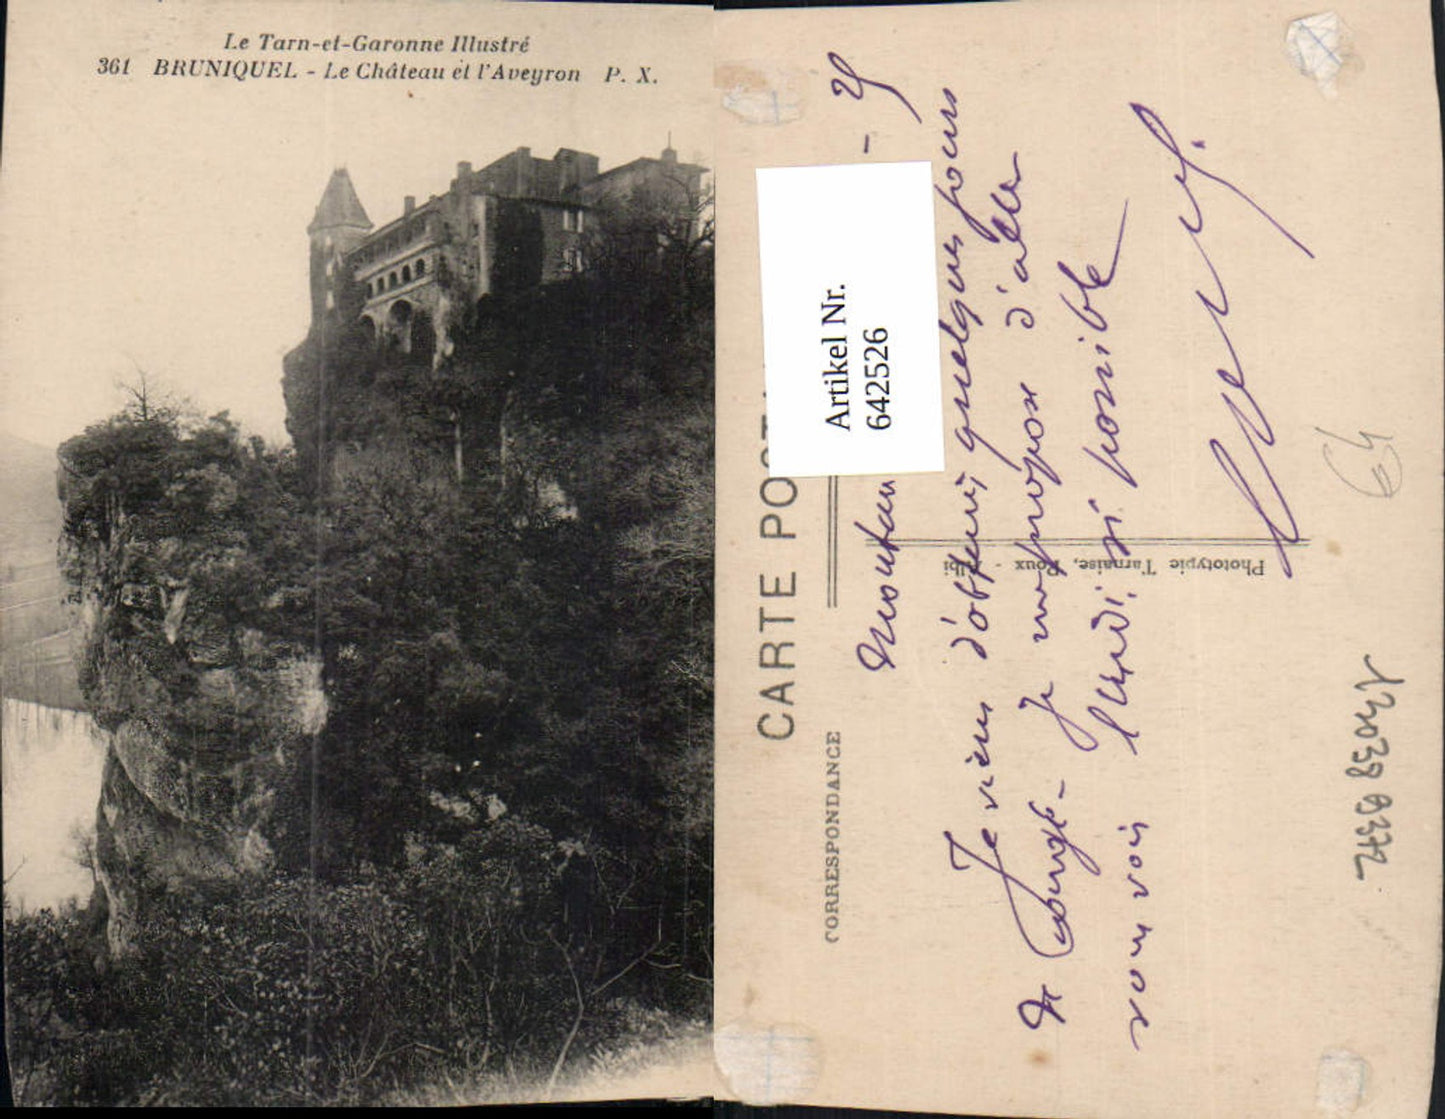 Le Tarn-et-Garonne Illustré
361 BRUNIQUEL - Le Château et l'Aveyron P. X.
CARTE POST
CORRESPONDANCE
Artikel Nr.
642526
Montau - 25
Je viens d'obtenir quelques jours
de congé - Je me propose d'aller
vous voir lundi, si possible
Phototypie Tarnaise, Poux - Albi.
64